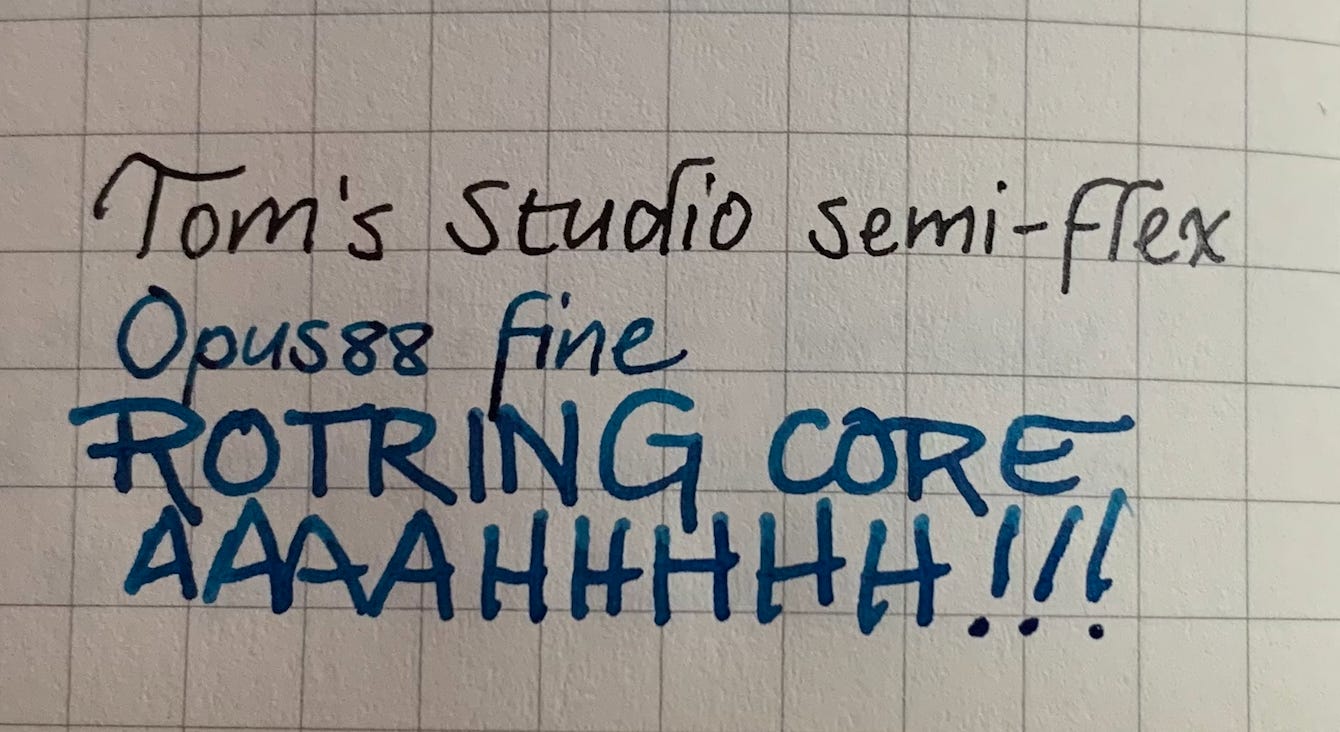 Tom's Studio semi-flex
Opus88 fine
ROTRING CORE
AAAAHHHHH!!!